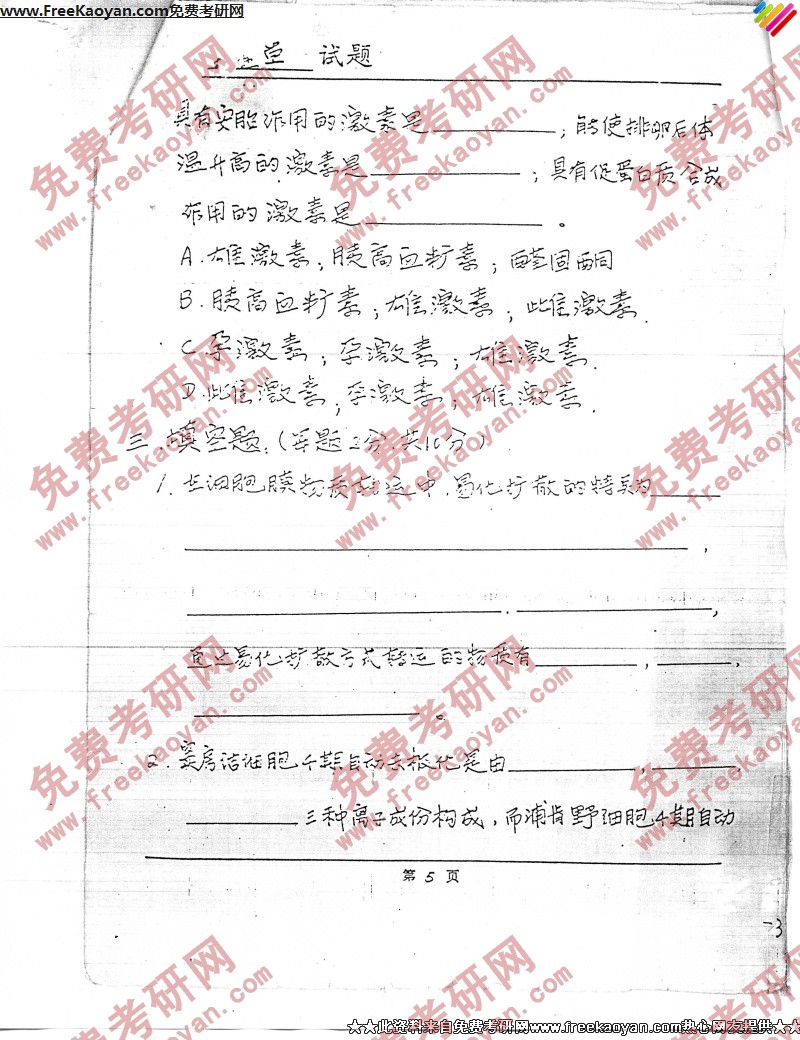 www.FreeKaoyan.com免费考研网
试题
具有安胎作用的激素是__________; 能使排卵后体
温升高的激素是__________; 具有促蛋白质合成
作用的激素是__________。
A. 雄激素; 胰高血糖素; 醛固酮
B. 胰高血糖素; 雄激素; 雌激素.
C. 孕激素; 孕激素; 雄激素.
D. 雌激素; 孕激素; 雄激素.
三. 填空题. (每题2分, 共10分)
1. 在细胞膜物质转运中, 易化扩散的特点为______
____________________,
__________. __________,
通过易化扩散方式转运的物质有______, ______,
__________。
2. 窦房结细胞4期自动去极化是由______, ______,
______三种离子成份构成, 而浦肯野细胞4期自动
第 5 页
-3
免费考研网
www.freekaoyan.com
★★此资料来自免费考研网www.freekaoyan.com热心网友提供★★